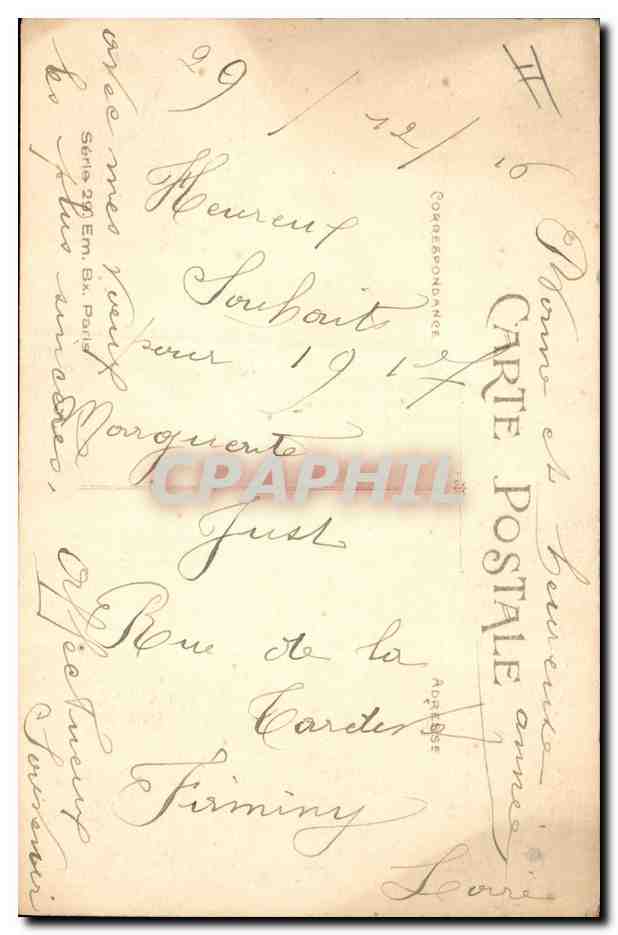 II
29 / 12 / 16
Heureux
Souhaits
pour 1917
Marguerite
Just
Rue de la
Firminy
Loire
Bonne et heureuse année
avec mes vœux
les plus sincères,
Affectueux
Souvenir
CARTE POSTALE
CORRESPONDANCE
ADRESSE
Série 29, Em. Bx. Paris
CPAPHIL